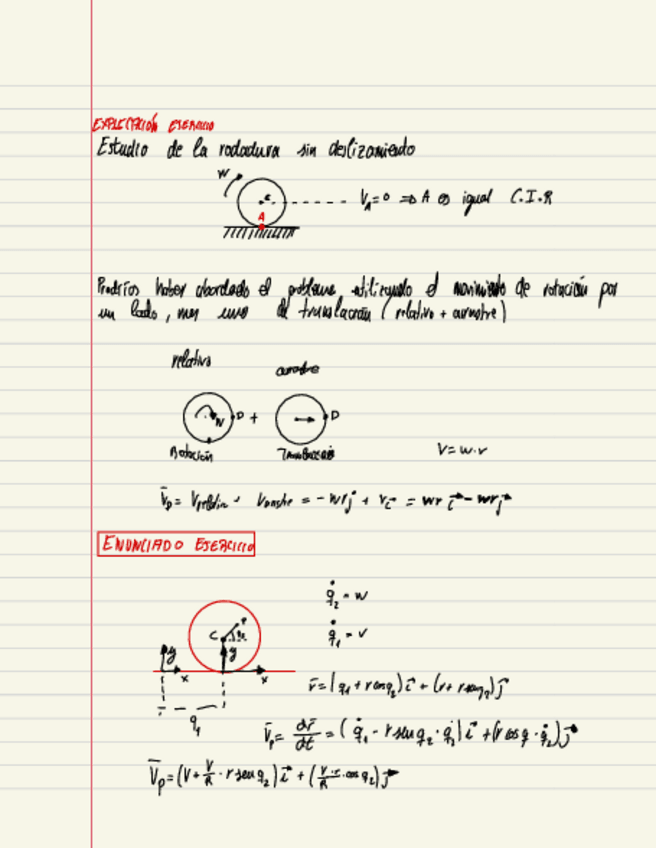 EXPLICACIÓN EJERCICIO
Estudio de la rodadura sin deslizamiento
W
C
A
V_A = 0 ⇒ A es igual C.I.R
Podríos haber abordado el problema utilizando el movimiento de rotación por
un lado, mas uno de translación (relativo + arrastre)
relativo arrastre
W P + P
Rotación Translación V = w·r
V̄p = Vrelativ + Varrastre = -wrj⃗ + vi⃗ = wr i⃗ - wrj⃗
ENUNCIADO EJERCICIO
q̇₂ = w
q̇₁ = v
C P
y y
x x
q₁
r̄ = (q₁ + r cosq₂) i⃗ + (r + r senq₂) j⃗
V̄p = dr̄/dt = (q̇₁ - r senq₂ · q̇₂) i⃗ + (r cos q · q̇₂) j⃗
V̄p = (V + V/R · r sen q₂) i⃗ + (V·r/R · cos q₂) j⃗